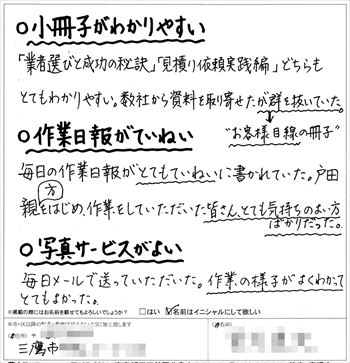 ○小冊子がわかりやすい
「業者選びと成功の秘訣」「見積り依頼実践編」どちらも
とてもわかりやすい。数社から資料を取り寄せたが群を抜いていた。
○作業日報がていねい
"お客様目線の冊子"
毎日の作業日報がとてもていねいに書かれていた。戸田
方
親をはじめ、作業をしていただいた皆さん、とても気持ちのよい方
ばかりだった。
○写真サービスがよい
毎日メールで送っていただいた。作業の様子がよくわかって
とてもよかった。
※掲載の際にはお名前を載せてもよろしいでしょうか?
□はい
☑名前はイニシャルにして欲しい
ご住所:〒
お名前:
三鷹市